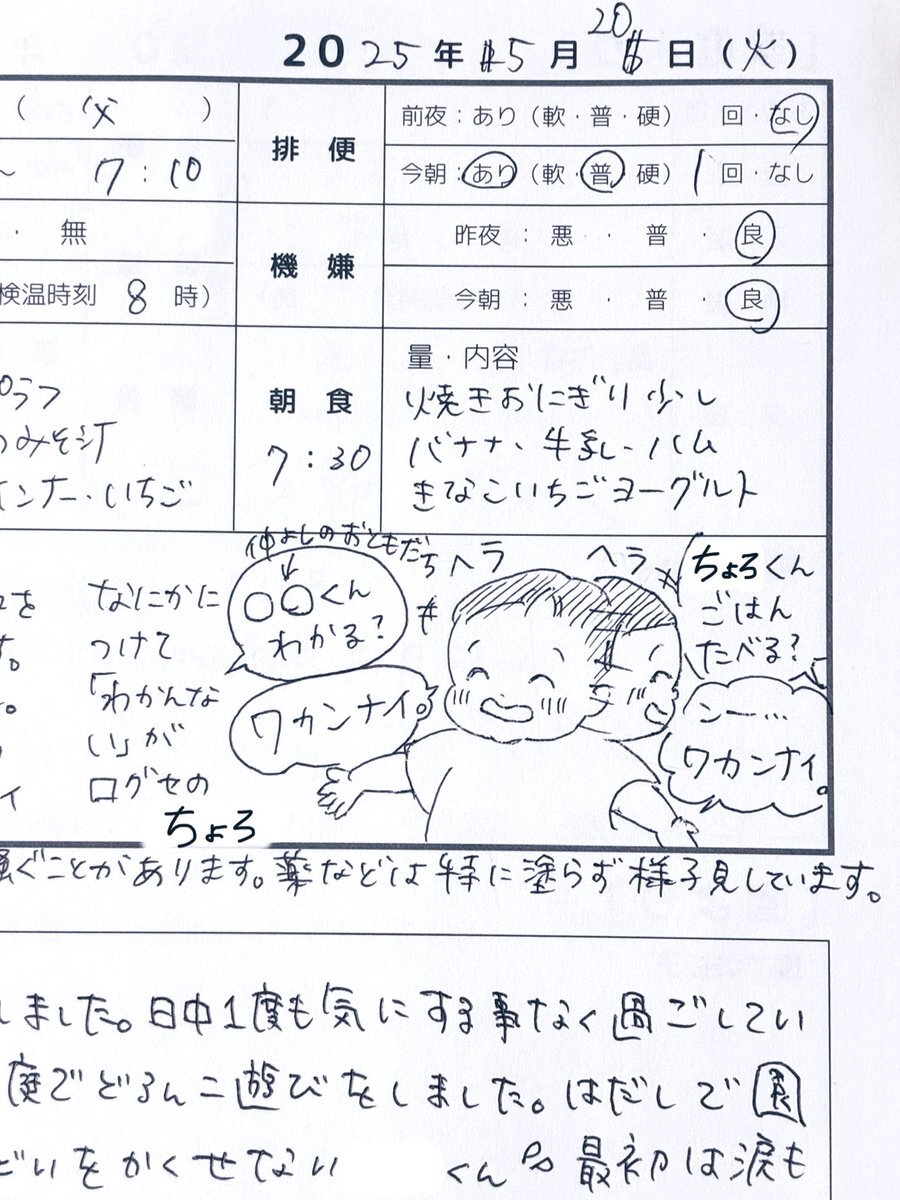 2025年 5月 20日（火）
（父）
排便
前夜：あり（軟・普・硬）　回・なし
〜 7:10
今朝：あり（軟・普・硬）1回・なし
・ 無
機嫌
昨夜：悪・普・良
検温時刻 8 時）
今朝：悪・普・良
朝食
7:30
量・内容
焼きおにぎり少し
バナナ、牛乳、ハム
きなこいちごヨーグルト
ピラフ
のみそ汁
インナー・いちご
なにかに
つけて
「わかんな
い」が
口グセの
ちょろ
仲よしのおともだち
↓
○○くん
わかる？
ワカンナイ。
ヘラ
ヘラ
ちょろくん
ごはん
たべる？
ンー…
ワカンナイ。
騒ぐことがあります。薬などは特に塗らず様子見しています。
しました。日中1度も気にする事なく過ごしてい
庭でどろんこ遊びをしました。はだしで園
どいをかくせない　くん 最初は涙も